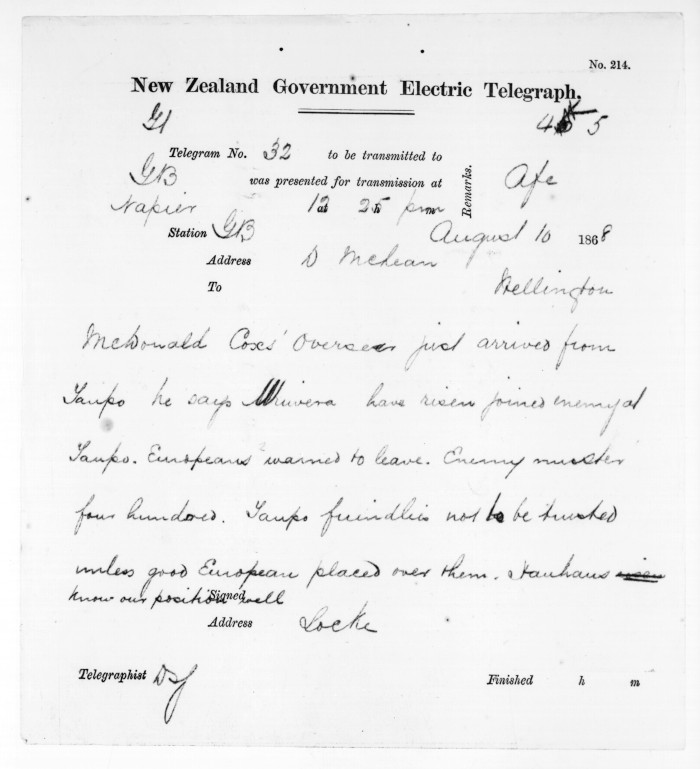 No. 214.
New Zealand Government Electric Telegraph.
Telegram No. 32 to be transmitted to
GB was presented for transmission at
Napier 12 25 pm
Remarks.
Station GB August 10 1868
Address D McLean
To Wellington
McDonald Coxs' Overseer just arrived from
Taupo he says have risen joined enemy at
Taupo. Europeans warned to leave. Enemy muster
four hundred. Taupo friendlies not to be trusted
unless good European placed over them. Hauhaus
know our position well
Signed
Address Locke
Telegraphist
Finished h m